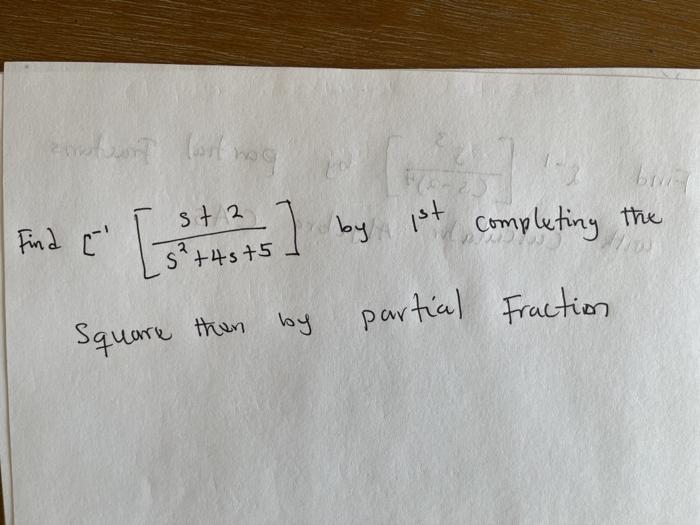 Find ℒ⁻¹ [ (s + 2) / (s² + 4s + 5) ] by 1st completing the
Square then by partial Fraction